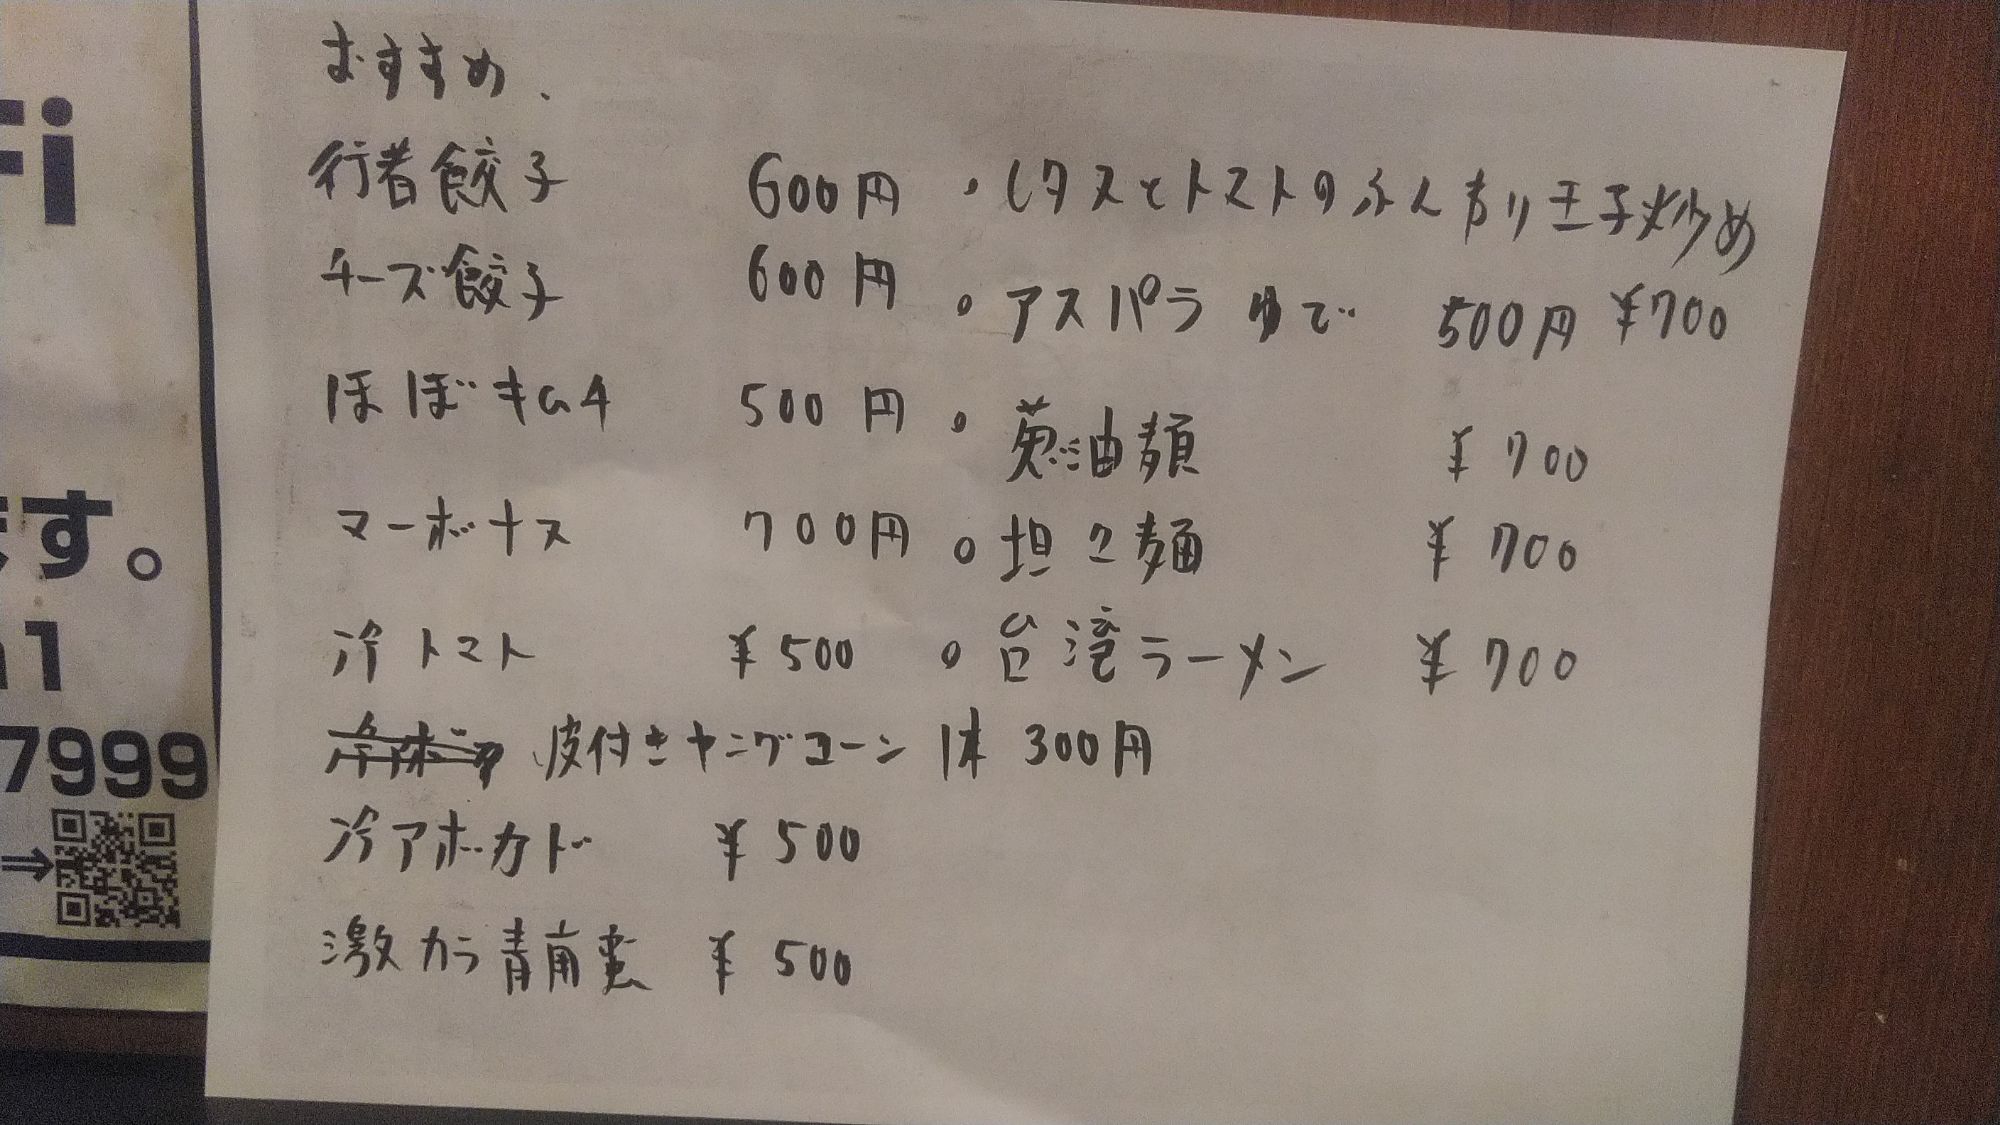 Fi
ます。
1
7999
⇒
おすすめ、
行者餃子 600円
チーズ餃子 600円
ほぼキムチ 500円
マーボナス 700円
冷トマト ¥500
皮付きヤングコーン 1本 300円
冷アボカド ¥500
激カラ青南蛮 ¥500
・レタスとトマトのふんわり玉子炒め
¥700
。アスパラ ゆで 500円
。葱油麺 ¥700
。坦々麺 ¥700
。台湾ラーメン ¥700